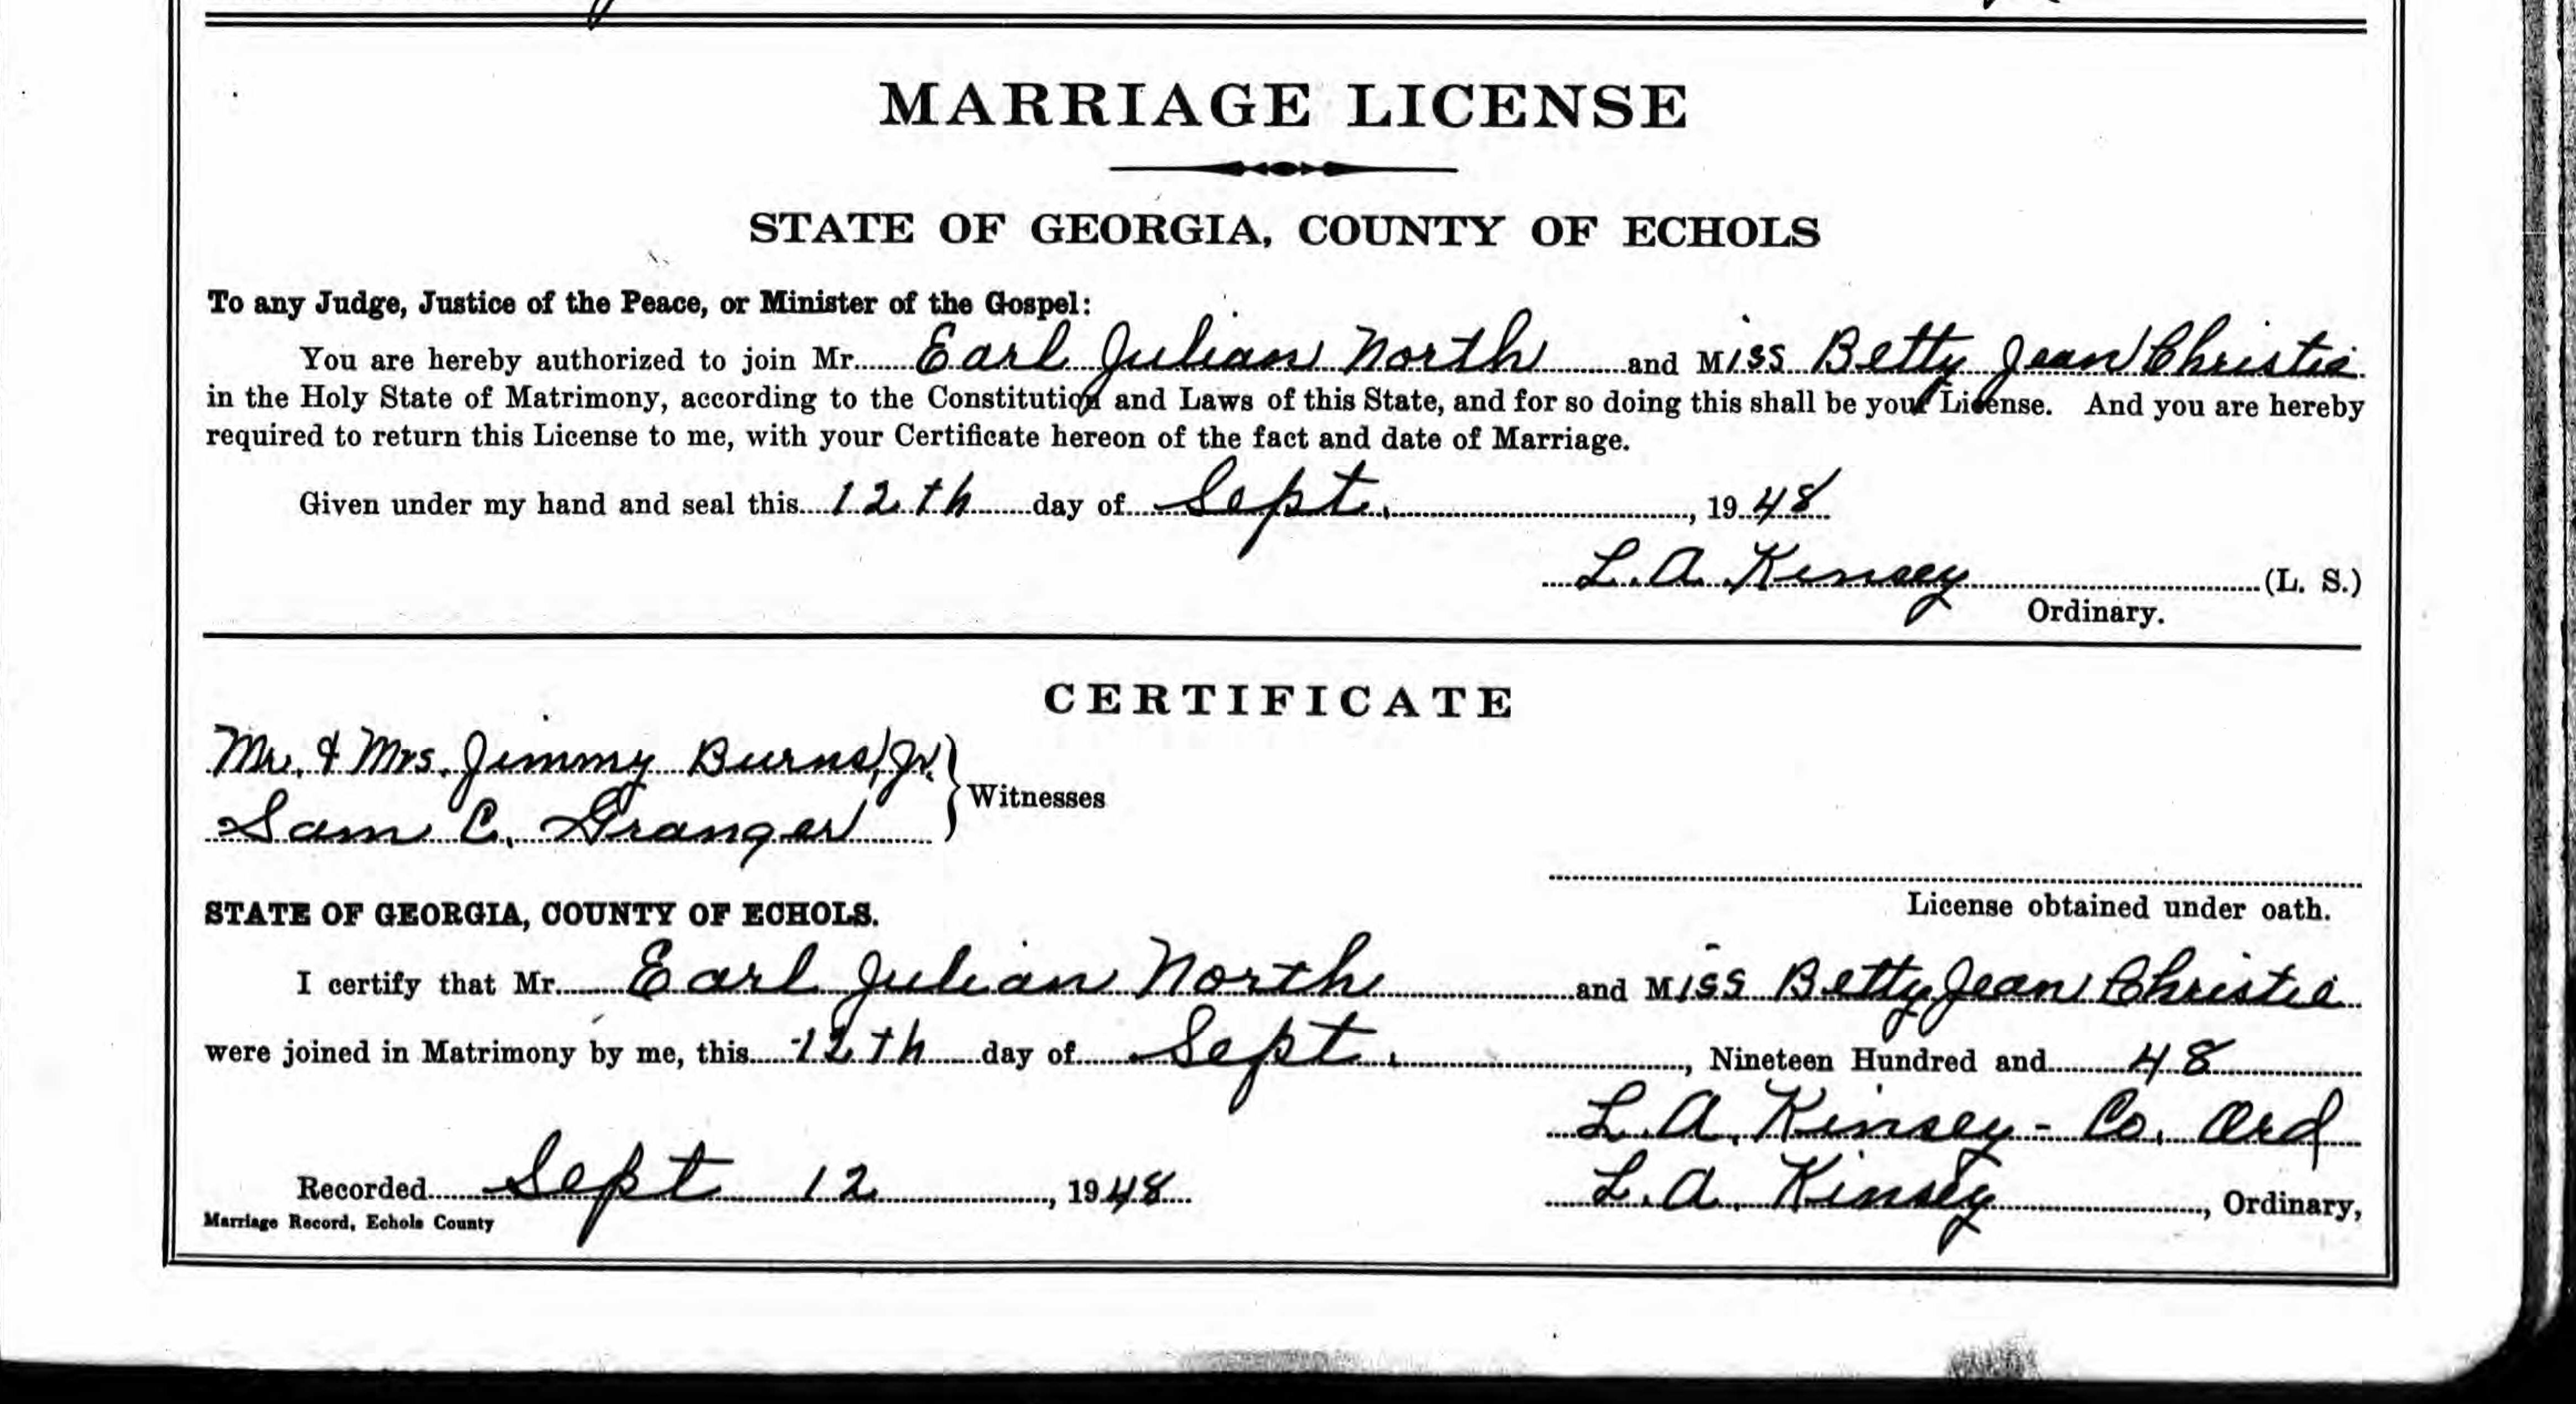 MARRIAGE LICENSE
STATE OF GEORGIA, COUNTY OF ECHOLS
To any Judge, Justice of the Peace, or Minister of the Gospel:
You are hereby authorized to join Mr. Earl Julian North and Miss Betty Jean Christie
in the Holy State of Matrimony, according to the Constitution and Laws of this State, and for so doing this shall be your License. And you are hereby
required to return this License to me, with your Certificate hereon of the fact and date of Marriage.
Given under my hand and seal this 12th day of Sept., 1948
L. A. Kinsey (L. S.)
Ordinary.
CERTIFICATE
Mr. & Mrs. Jimmy Burns, Jr.
Sam C. Granger
Witnesses
License obtained under oath.
STATE OF GEORGIA, COUNTY OF ECHOLS.
I certify that Mr. Earl Julian North and Miss Betty Jean Christie
were joined in Matrimony by me, this 12th day of Sept., Nineteen Hundred and 48
L. A. Kinsey - Co. Ord
Recorded Sept 12, 1948 L. A. Kinsey, Ordinary,
Marriage Record, Echols County